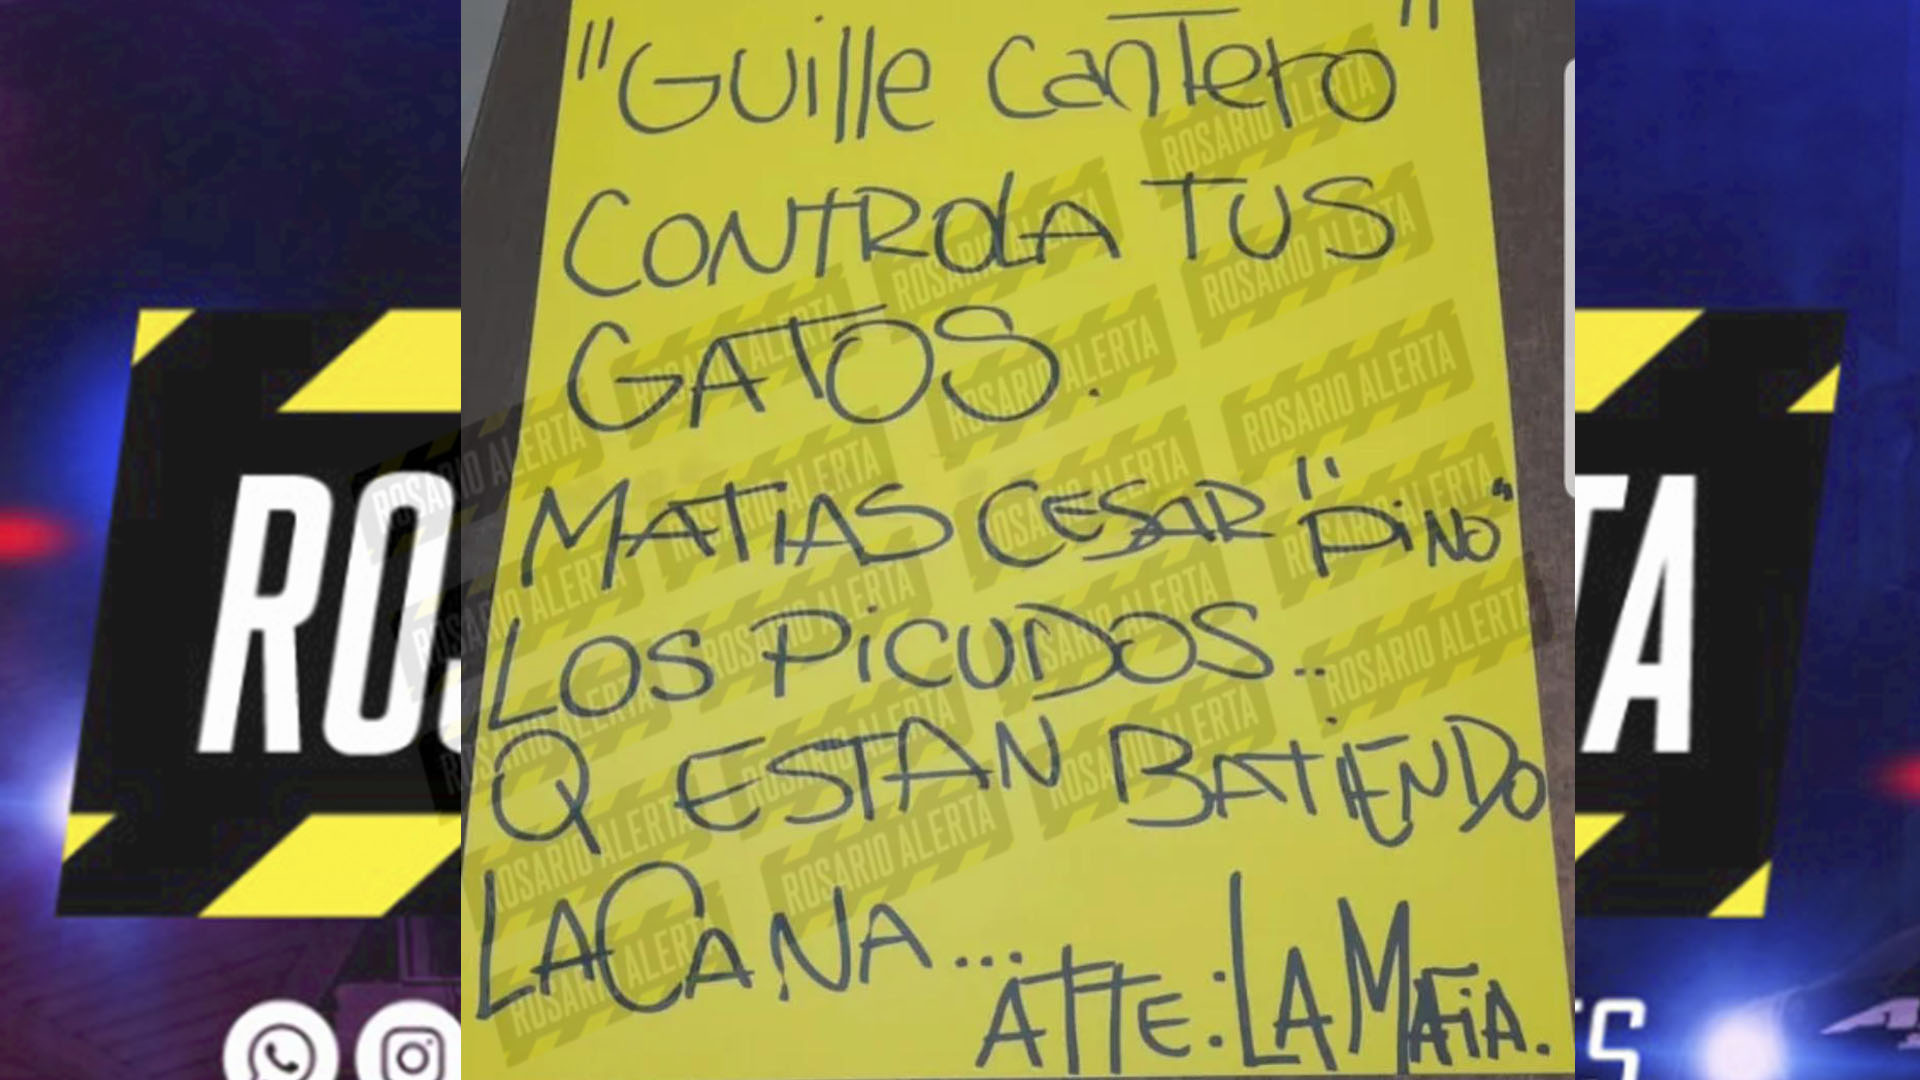 "Guille Cantero"
CONTROLA TUS
GATOS.
MATIAS CESAR "PiNO"
LOS PiCUDOS...
Q ESTAN BATIENDO
LA CANA...
ATTE: LA MAFiA.
ROSARIO ALERTA